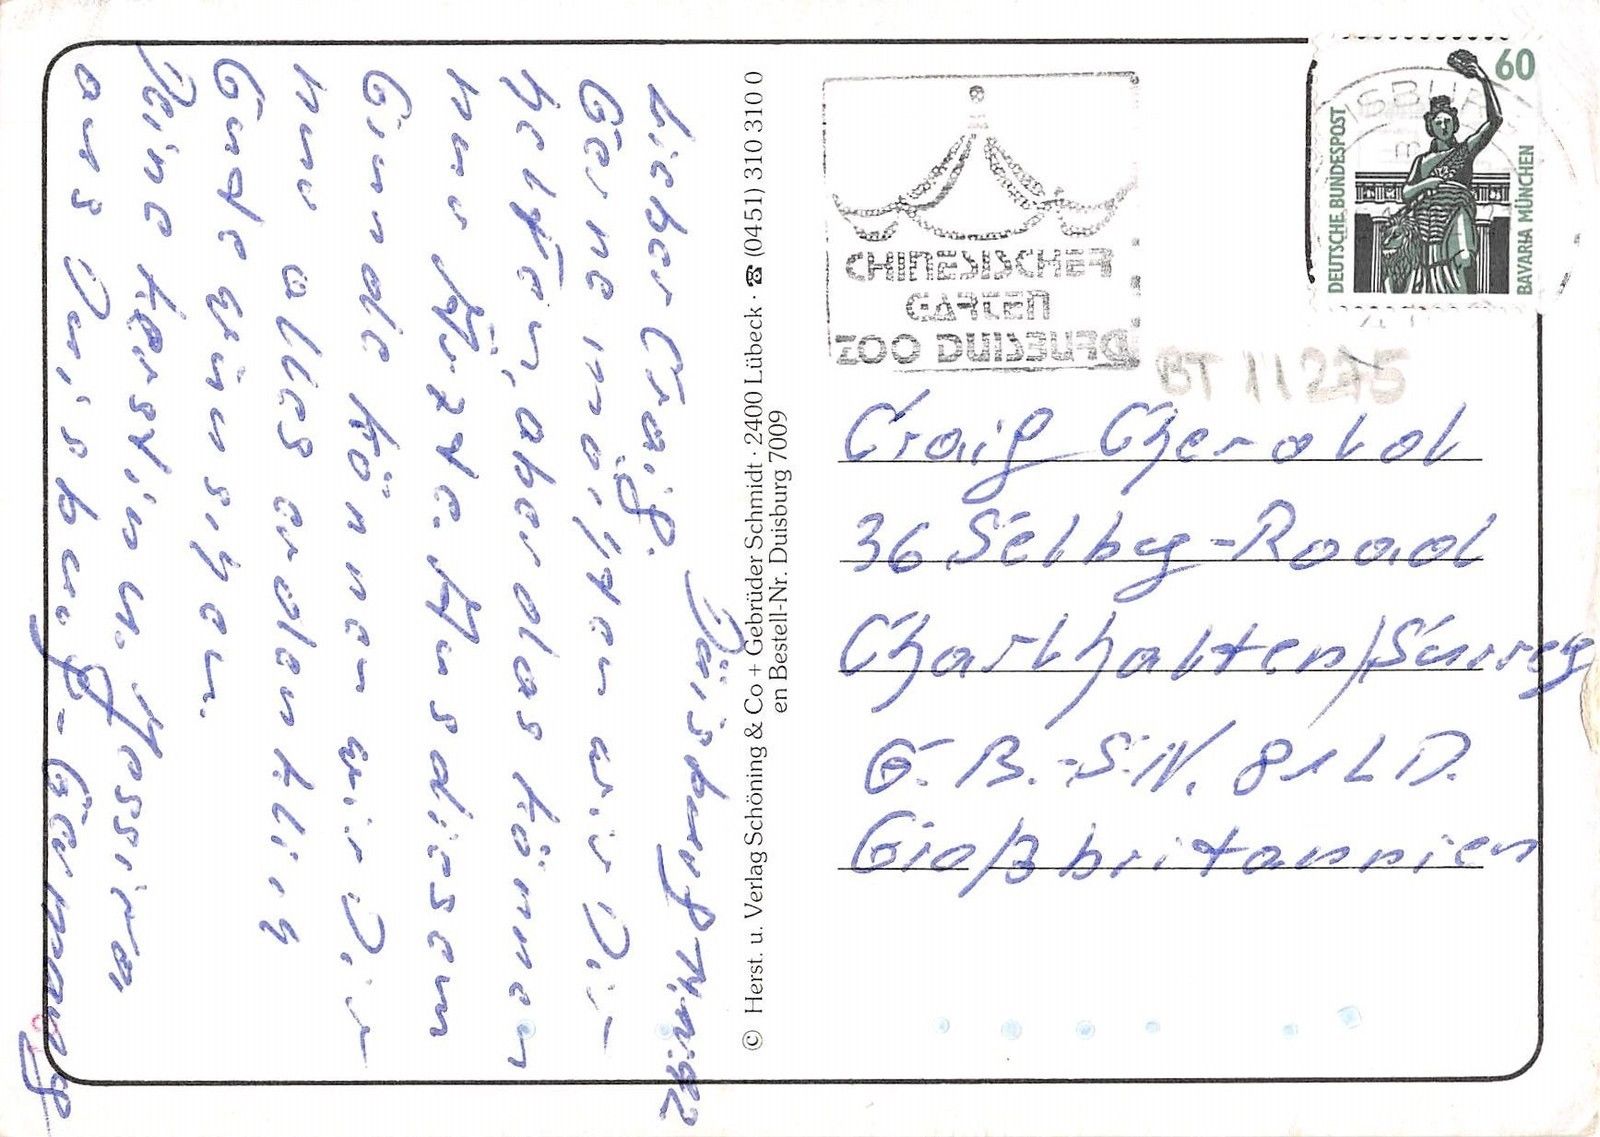 Duisburg
Lieber Craig.
Gerne möchten wir Dir
helfen, aber das können
nur Ärzte. Aus diesem
Grunde können wir Dir
nur alles erdenklich
Gute wünschen.
Deine Kerstin u.
aus Duisburg-Germany
© Herst. u. Verlag Schöning & Co + Gebrüder Schmidt · 2400 Lübeck · ☎ (0451) 310 310 0
en Bestell-Nr. Duisburg 7009
CHINESISCHER
GARTEN
ZOO DUISBURG
DEUTSCHE BUNDESPOST
60
BAVARIA MÜNCHEN
ISBUR
BT 11275
Craig Gherold
36 Selby-Roaad
Charlhalten/Surrey
G.B.-S.N. 81LD.
Großbritannien